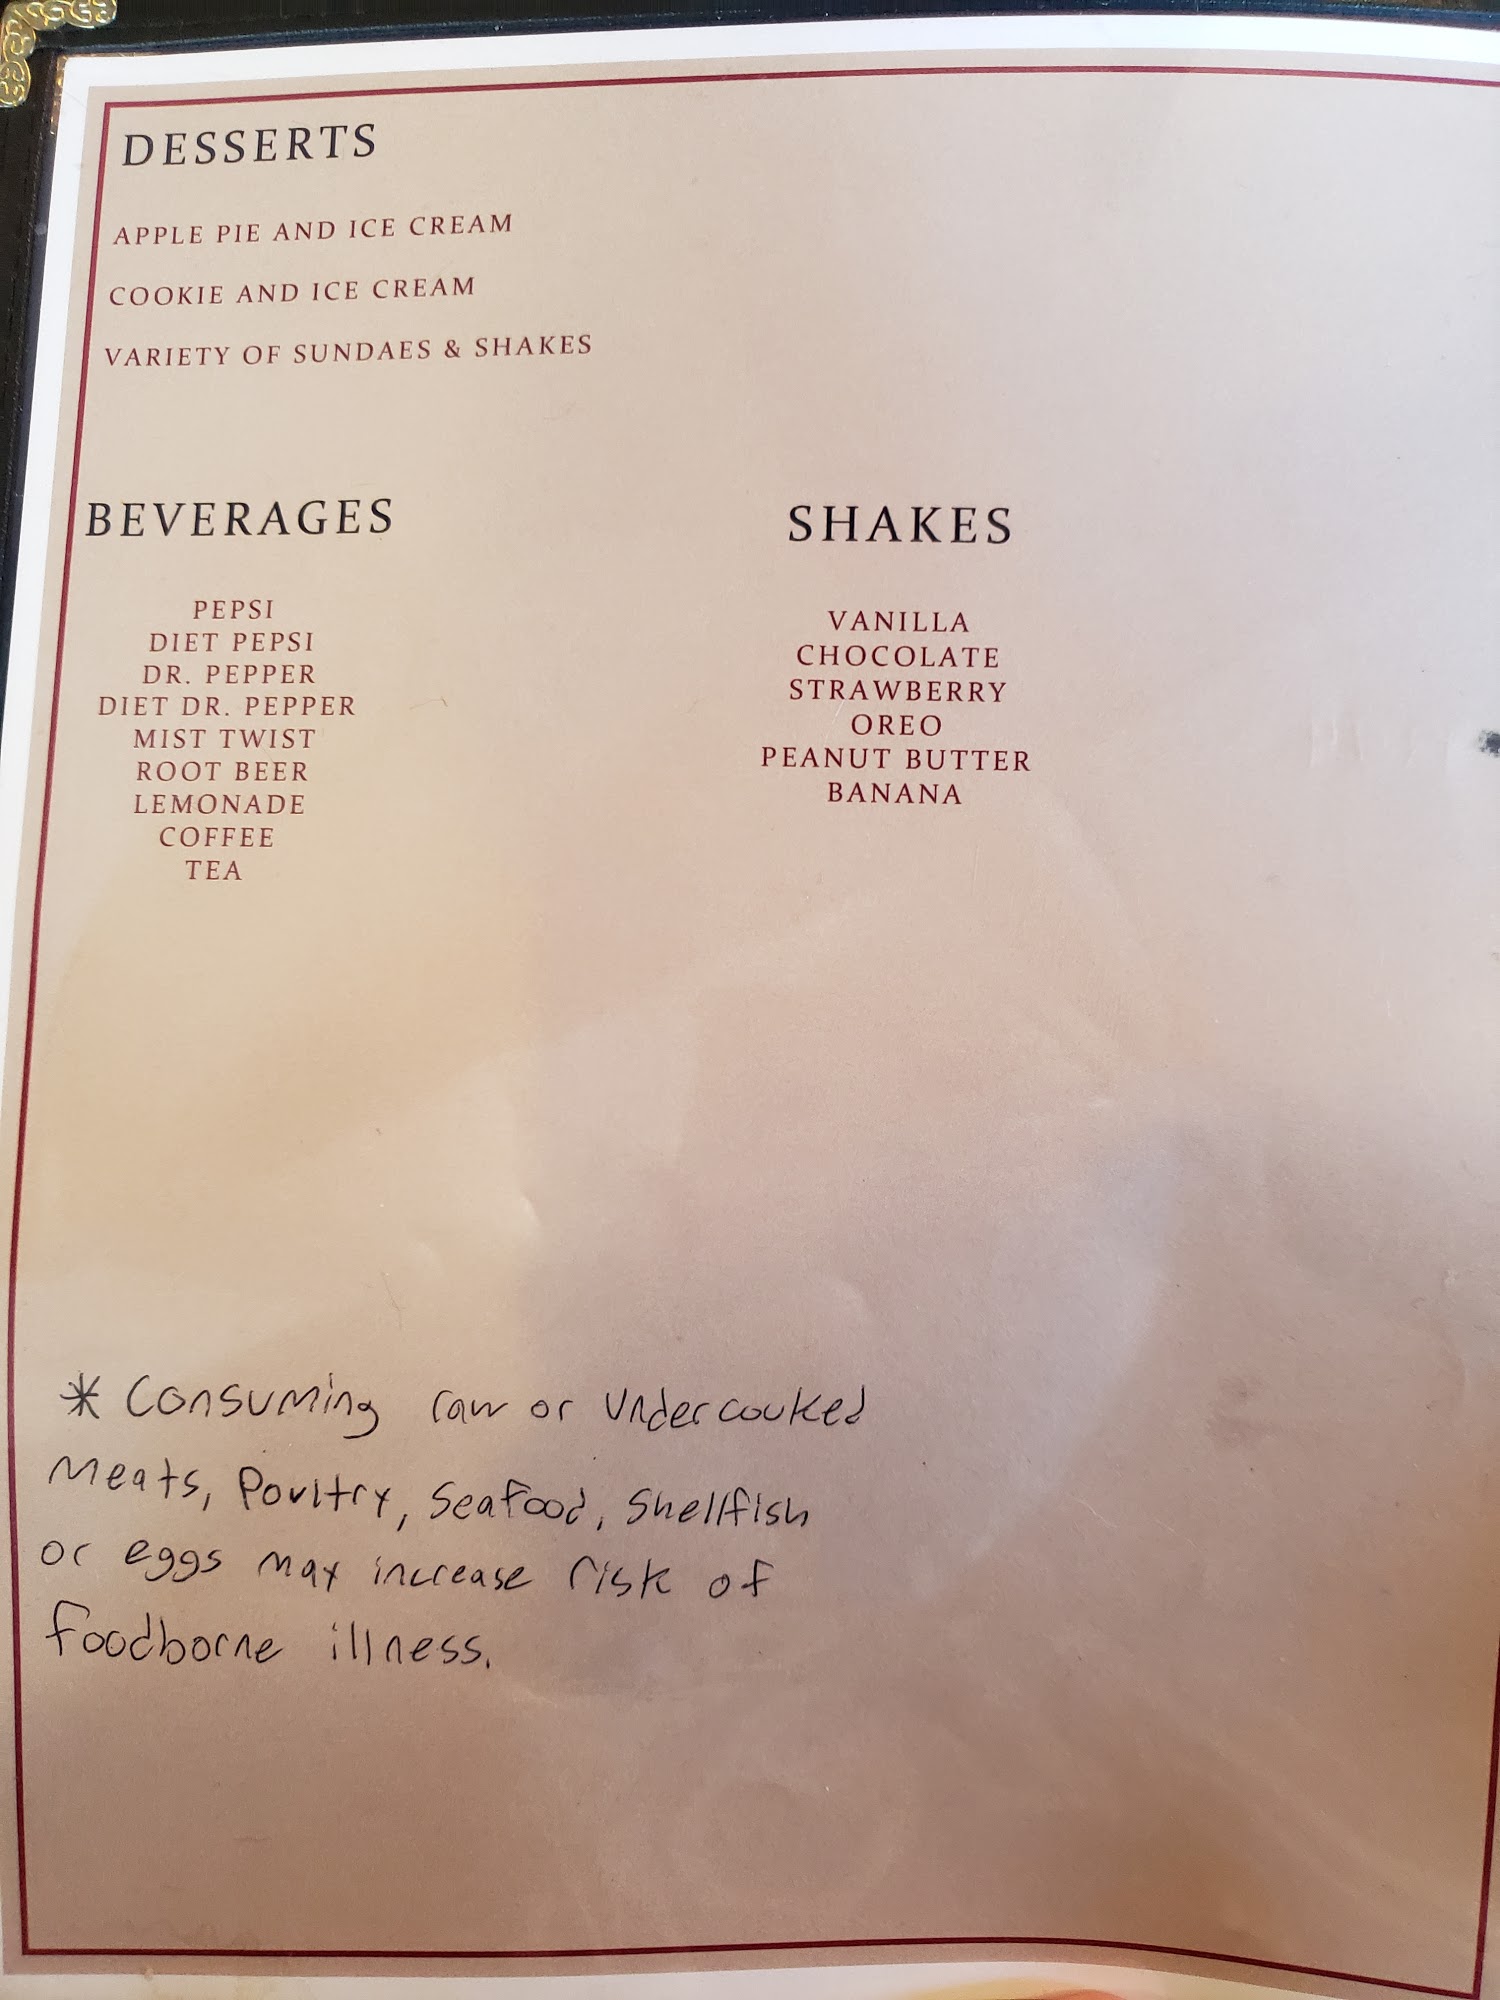 DESSERTS
APPLE PIE AND ICE CREAM
COOKIE AND ICE CREAM
VARIETY OF SUNDAES & SHAKES
BEVERAGES
PEPSI
DIET PEPSI
DR. PEPPER
DIET DR. PEPPER
MIST TWIST
ROOT BEER
LEMONADE
COFFEE
TEA
SHAKES
VANILLA
CHOCOLATE
STRAWBERRY
OREO
PEANUT BUTTER
BANANA
* Consuming raw or undercooked
meats, Poultry, Seafood, Shellfish
or eggs may increase risk of
foodborne illness.